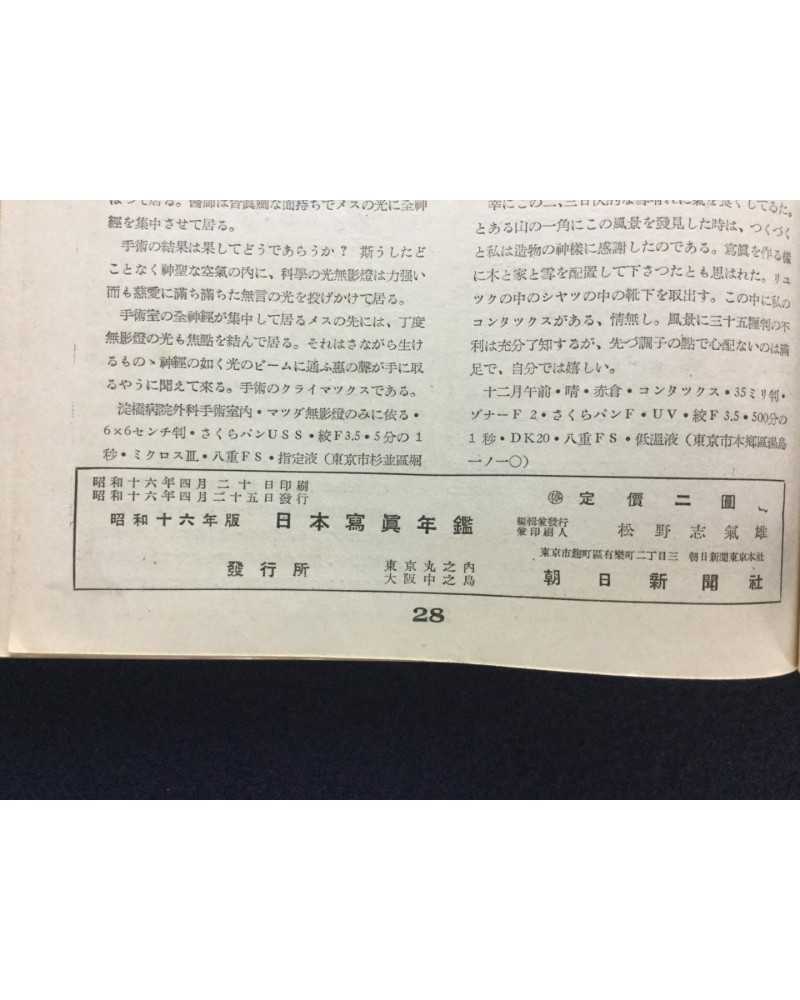 居る。醫師は皆眞劍な面持ちでメスの光に全神
經を集中させて居る。
手術の結果は果してどうであらうか？　斯うしたど
ことなく神聖な空氣の內に、科學の光無影燈は力强い
而も慈愛に滿ち滿ちた無言の光を投げかけて居る。
手術室の全神經が集中して居るメスの先には、丁度
無影燈の光も焦點を結んで居る。それはさながら生け
るものゝ神經の如く光のビームに通ふ惠の聲が手に取
るやうに聞えて來る。手術のクライマツクスである。
淀橋病院外科手術室內・マツダ無影燈のみに依る・
6×6センチ判・さくらパンUSS・絞F3.5・5分の1
秒・ミクロスⅢ・八重FS・指定液（東京市杉並區堀
幸にこの二、三日
とある山の一角にこの風景を發見した時は、つくづく
と私は造物の神樣に感謝したのである。寫眞を作る樣
に木と家と雪を配置して下さつたとも思はれた。リユ
ツクの中のシヤツの中の靴下を取出す。この中に私の
コンタツクスがある、情無し。風景に三十五粍判の不
利は充分了知するが、先づ調子の點で心配ないのは滿
足で、自分では嬉しい。
十二月午前・晴・赤倉・コンタツクス・35ミリ判・
ゾナーF 2・さくらパンF・UV・絞F 3.5・500分の
1秒・DK20・八重FS・低溫液（東京市本鄕區湯島
一ノ一〇）
昭和十六年四月二十日印刷
昭和十六年四月二十五日發行
昭和十六年版　日本寫眞年鑑
發行所　東京丸之內
大阪中之島
定價二圓
編輯兼發行
兼印刷人　松野志氣雄
東京市麴町區有樂町二丁目三　朝日新聞東京本社
朝日新聞社
28